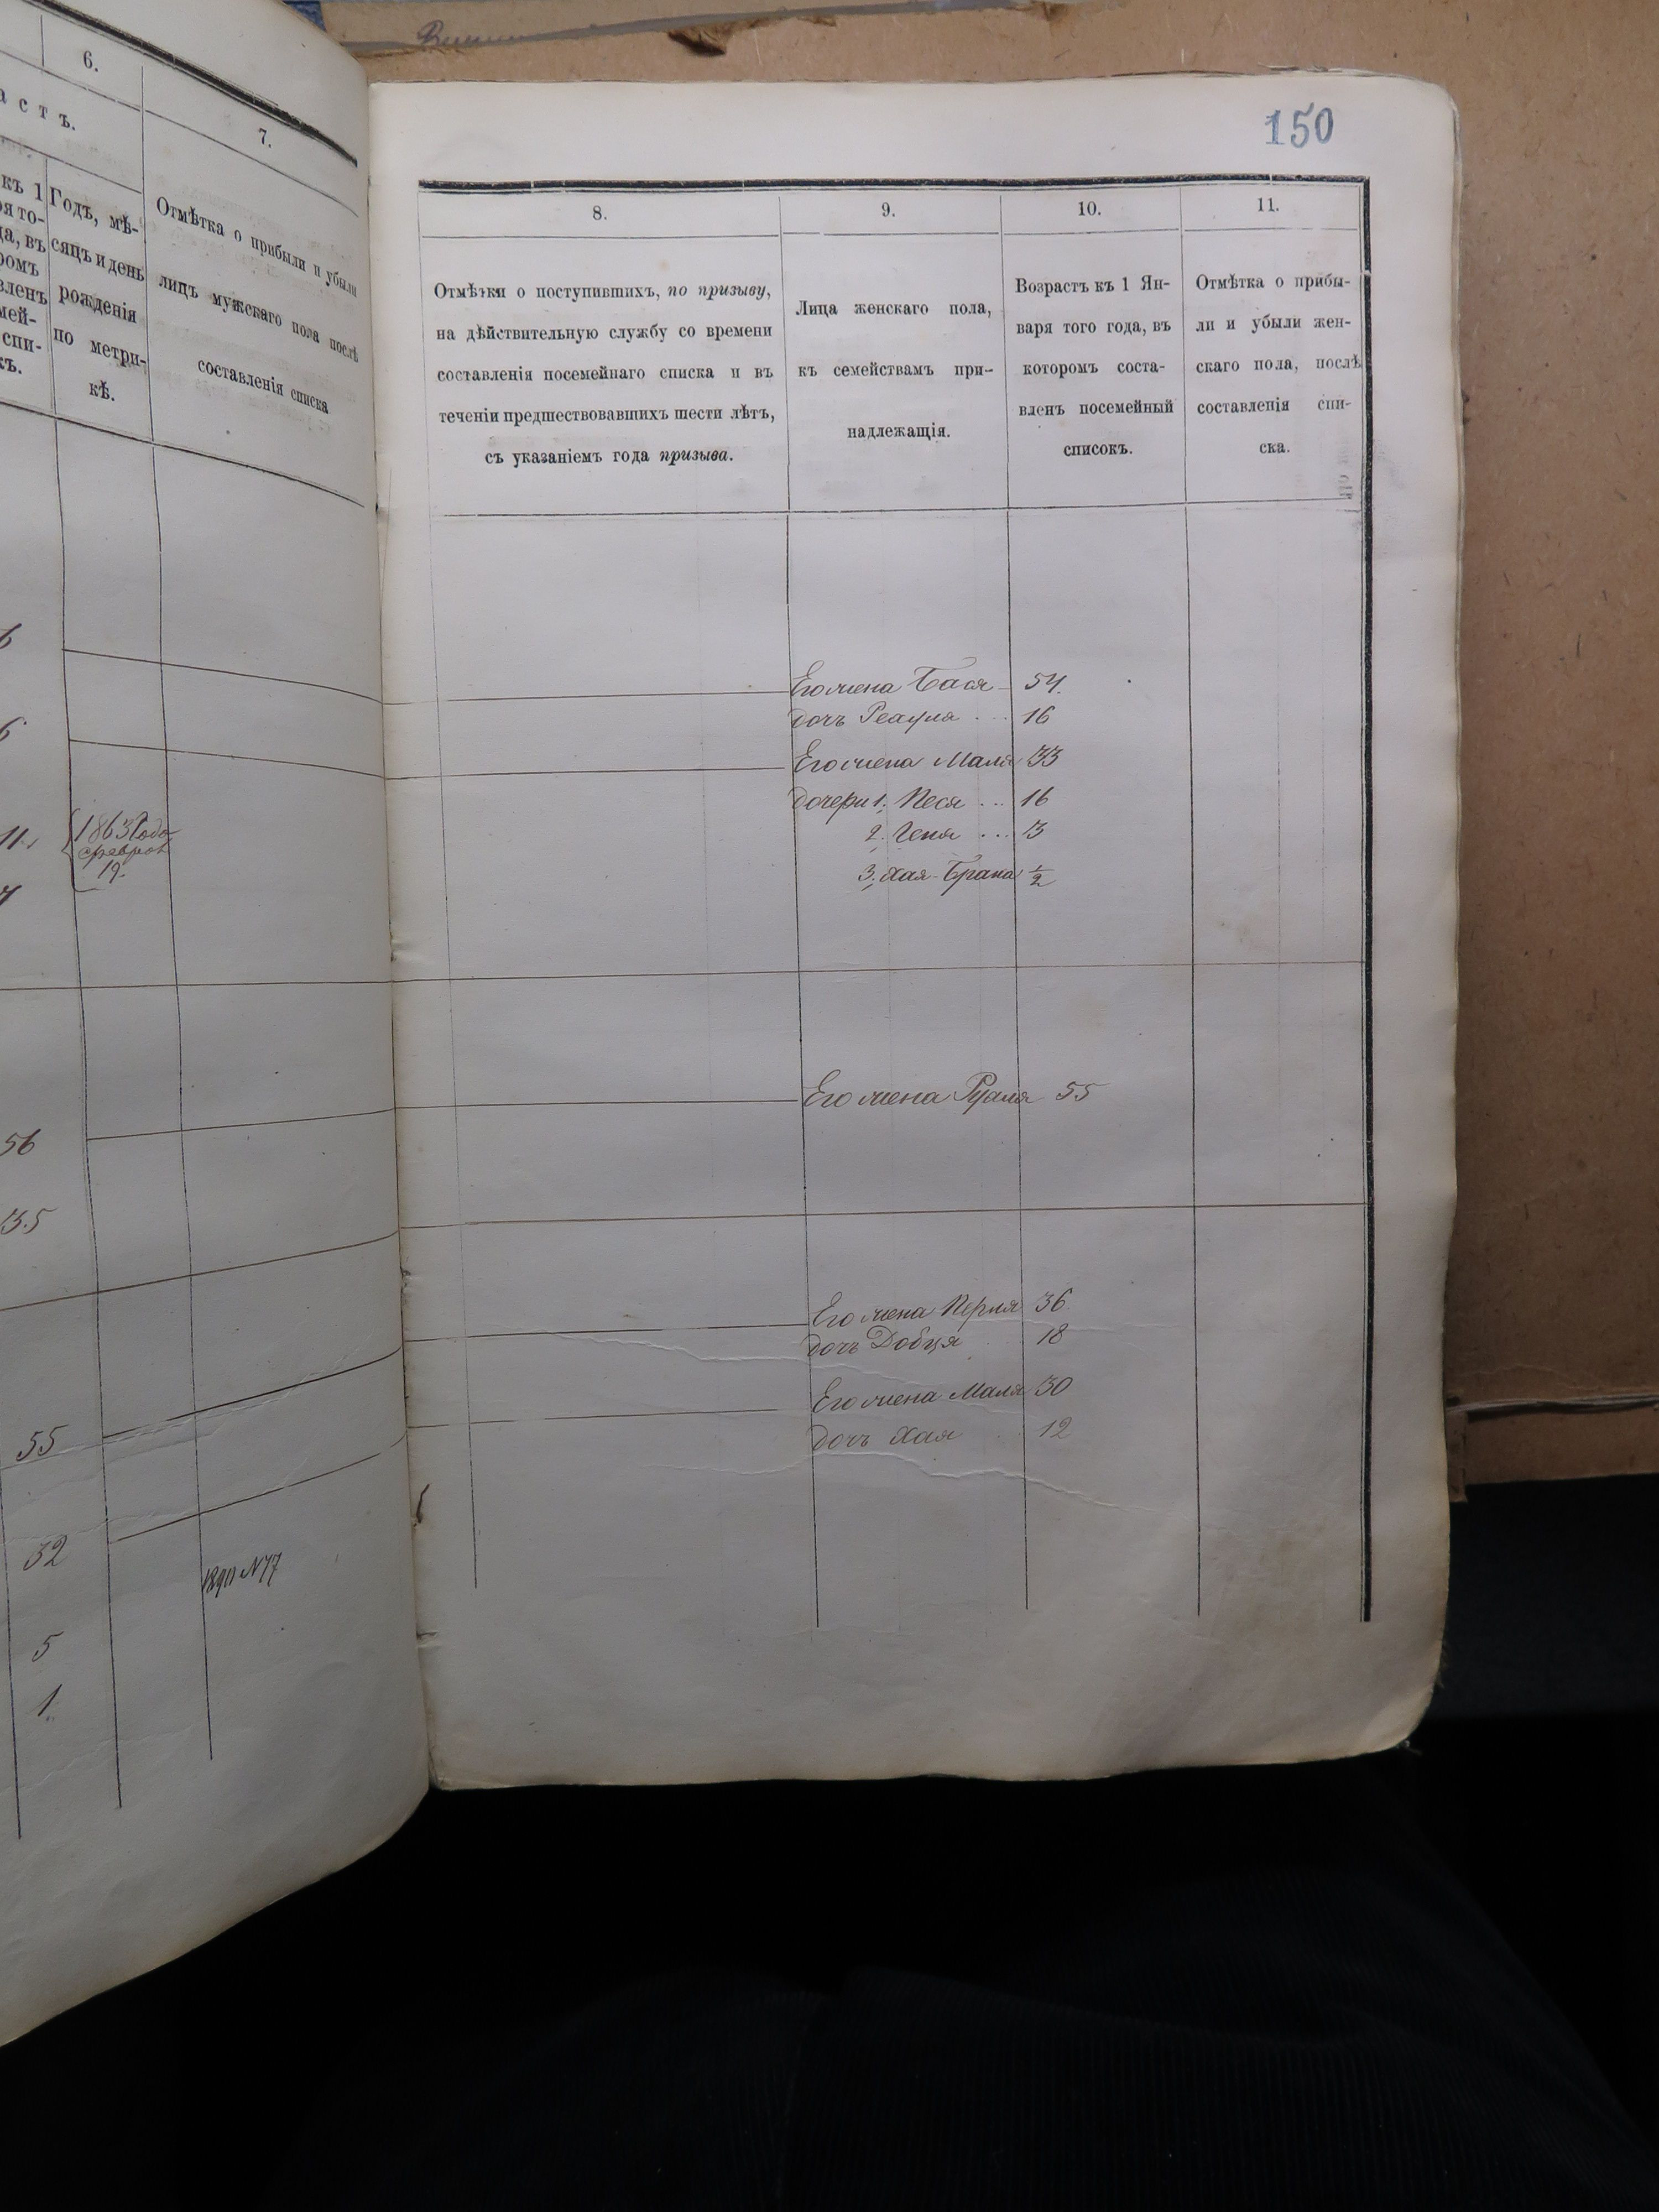 6.
астъ.
къ 1
ря то-
да, въ
ромъ
вленъ
мей-
спи-
къ.
Годъ, мѣ-
сяцъ и день
рожденія
по метри-
кѣ.
7.
Отмѣтка о прибыли и убыли
лицъ мужскаго пола послѣ
составленія списка
6
6
11.
1863 Года
феврал
19.
7
56
35
55
32
5
1.
150
8.
Отмѣтки о поступившихъ, по призыву,
на дѣйствительную службу со времени
составленія посемейнаго списка и въ
теченіи предшествовавшихъ шести лѣтъ,
съ указаніемъ года призыва.
9.
Лица женскаго пола,
къ семействамъ при-
надлежащія.
10.
Возрастъ къ 1 Ян-
варя того года, въ
которомъ соста-
вленъ посемейный
списокъ.
11.
Отмѣтка о прибы-
ли и убыли жен-
скаго пола, послѣ
составленія спи-
ска.
Его жена Бася 54.
дочь 16
Его жена Маля 33
дочери 1, Песя ... 16
2, Геня ... 3
3, Хая-Брана 1/2
Его жена 55
Его жена Перля 36
дочь Добця 18
Его жена Маля 30
дочь Хая 12